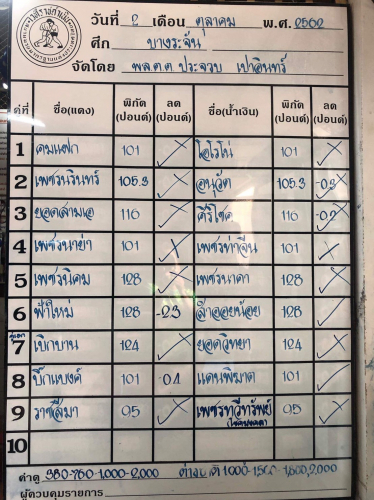 วันที่ 2 เดือน ตุลาคม พ.ศ. 2562
ศึก บางระจัน
จัดโดย พล.ต.ต ประจวบ เปาอินทร์
คู่ที่ ชื่อ(แดง) พิกัด (ปอนด์) ลด (ปอนด์) ชื่อ(น้ำเงิน) พิกัด (ปอนด์) ลด (ปอนด์)
1 คมแฝก 101 ไอโรโน่ 101
2 เพชรนรินทร์ 105.3 อนุวัต 105.3
3 ยอดสามเอ 116 ศิริโชค 116
4 เพชรนาย่า 101 เพชรท่าจีน 101
5 เพชรนิคม 128 เพชรนาคา 128
6 ฟ้าใหม่ 128 -2.3 ลำออยน้อย 128
7 เบิกบาน 124 ยอดวิทยา 124
8 บิ๊กแบงค์ 101 แดนพิฆาต 101
9 ราชสีมา 95 เพชรทวีทรัพย์ 95
10
ค่าดู 380-760-1,000-2,000
ผู้ควบคุมรายการ